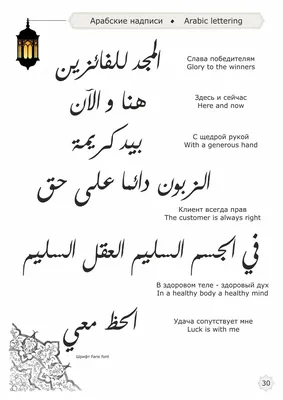 Арабские надписи • Arabic lettering
المجد للفائزين
Слава победителям
Glory to the winners
هنا و الآن
Здесь и сейчас
Here and now
بيد كريمة
С щедрой рукой
With a generous hand
الزبون دائما على حق
Клиент всегда прав
The customer is always right
في الجسم السليم العقل السليم
В здоровом теле - здоровый дух
In a healthy body a healthy mind
الحظ معي
Удача сопутствует мне
Luck is with me
Шрифт Farsi font
30